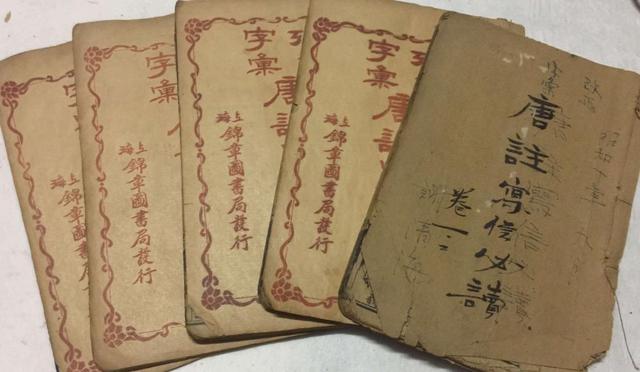 字彙
上海
錦章圖書局發
字彙
上海
錦章圖書局發行
字彙
唐註
上海
錦章圖書局發行
字彙
唐註
上海
錦章圖書局發行
唐註寫信必讀
卷一二